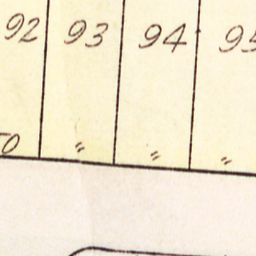 92 93 94 95
50 " " "